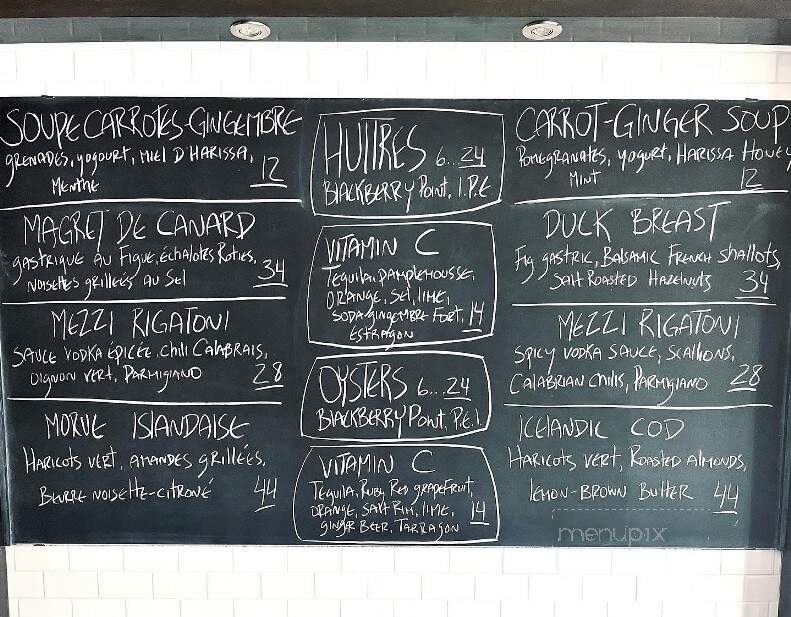 SOUPE CARROTES-GINGEMBRE
GRENADES, YOGOURT, MIEL D'HARISSA,
MENTHE 12
MAGRET DE CANARD
GASTRIQUE AU FIGUE, ÉCHALOTES ROTIES,
NOISETTES GRILLÉES AU SEL 34
MEZZI RIGATONI
SAUCE VODKA ÉPICÉE, CHILI CALABRAIS,
OIGNON VERT, PARMIGIANO 28
MORUE ISLANDAISE
HARICOTS VERT, AMANDES GRILLÉES,
BEURRE NOISETTE-CITRONÉ 44
HUITRES 6...24
BLACKBERRY POINT, I.P.E
VITAMIN C
TEQUILA, PAMPLEMOUSSE,
ORANGE, SEL, LIME,
SODA-GINGEMBRE FORT, 14
ESTRAGON
OYSTERS 6...24
BLACKBERRY POINT, P.E.I
VITAMIN C
TEQUILA, RUBY RED GRAPEFRUIT,
ORANGE, SALT RIM, LIME, 14
GINGER BEER, TARRAGON
CARROT-GINGER SOUP
POMEGRANATES, YOGURT, HARISSA HONEY
MINT 12
DUCK BREAST
FIG GASTRIC, BALSAMIC FRENCH SHALLOTS,
SALT ROASTED HAZELNUTS 34
MEZZI RIGATONI
SPICY VODKA SAUCE, SCALLIONS,
CALABRIAN CHILIS, PARMIGIANO 28
ICELANDIC COD
HARICOTS VERT, ROASTED ALMONDS,
LEMON-BROWN BUTTER 44
menupix